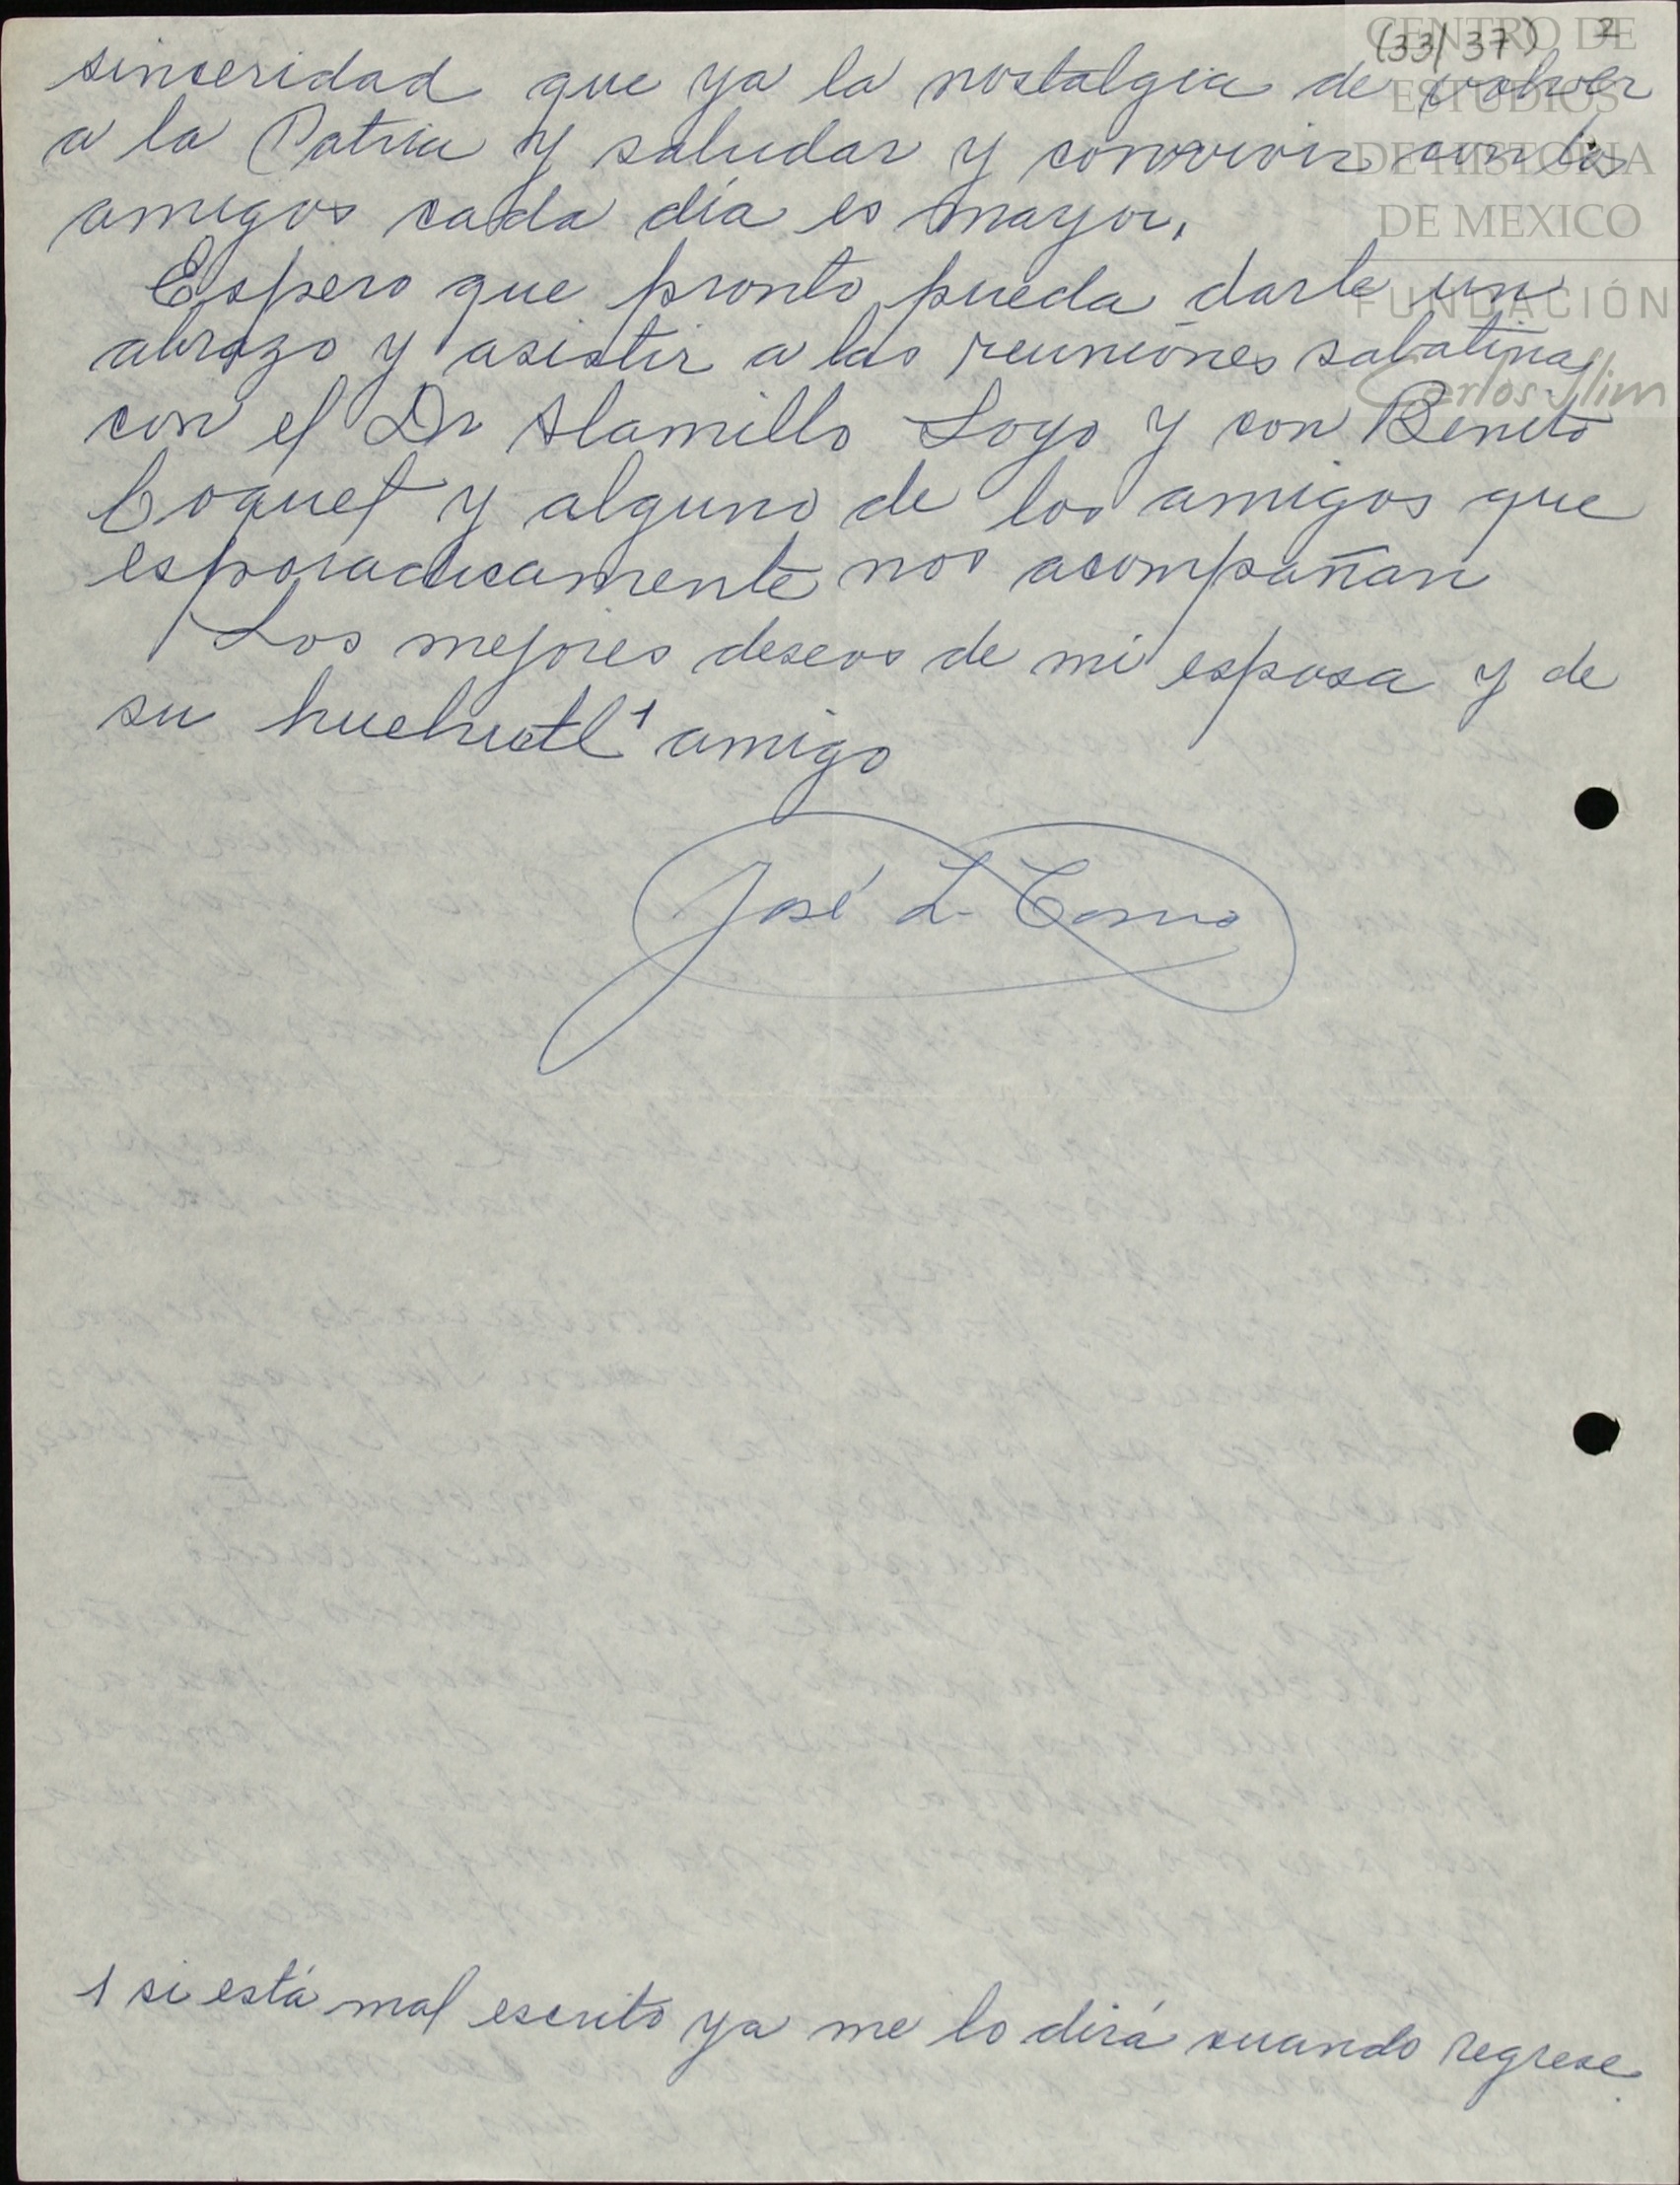 (33/37) 2
CENTRO DE
ESTUDIOS
DE HISTORIA
DE MEXICO
FUNDACIÓN
Carlos Slim
sinceridad que ya la nostalgia de volver
a la Patria y saludar y convivir con los
amigos cada día es mayor.
Espero que pronto pueda darle un
abrazo y asistir a las reuniones sabatinas
con el Dr Alamillo Loyo y con Benito
Coquet y alguno de los amigos que
esporadicamente nos acompañan
Los mejores deseos de mi esposa y de
su huehuetl¹ amigo
José L.
1 si está mal escrito ya me lo dirá cuando regrese.